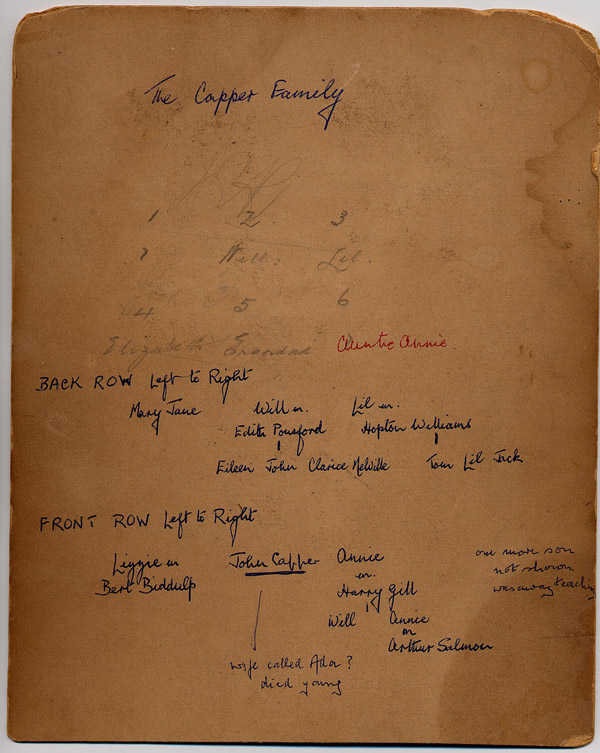 The Capper Family
1 2 3
? Will. Lil.
4 5 6
Elizabeth Grandad Auntie Annie.
BACK ROW Left to Right
Mary Jane Will m. Lil m.
Edith Pousford Hopton Williams
Eileen John Clarice Melville Tom Lil Jack
FRONT ROW Left to Right
Lizzie m John Capper Annie
Bert Biddulp m.
Harry Gill
Will Annie
m
Arthur Salmon
one more son
not shown
was away teaching
wife called Ada?
died young